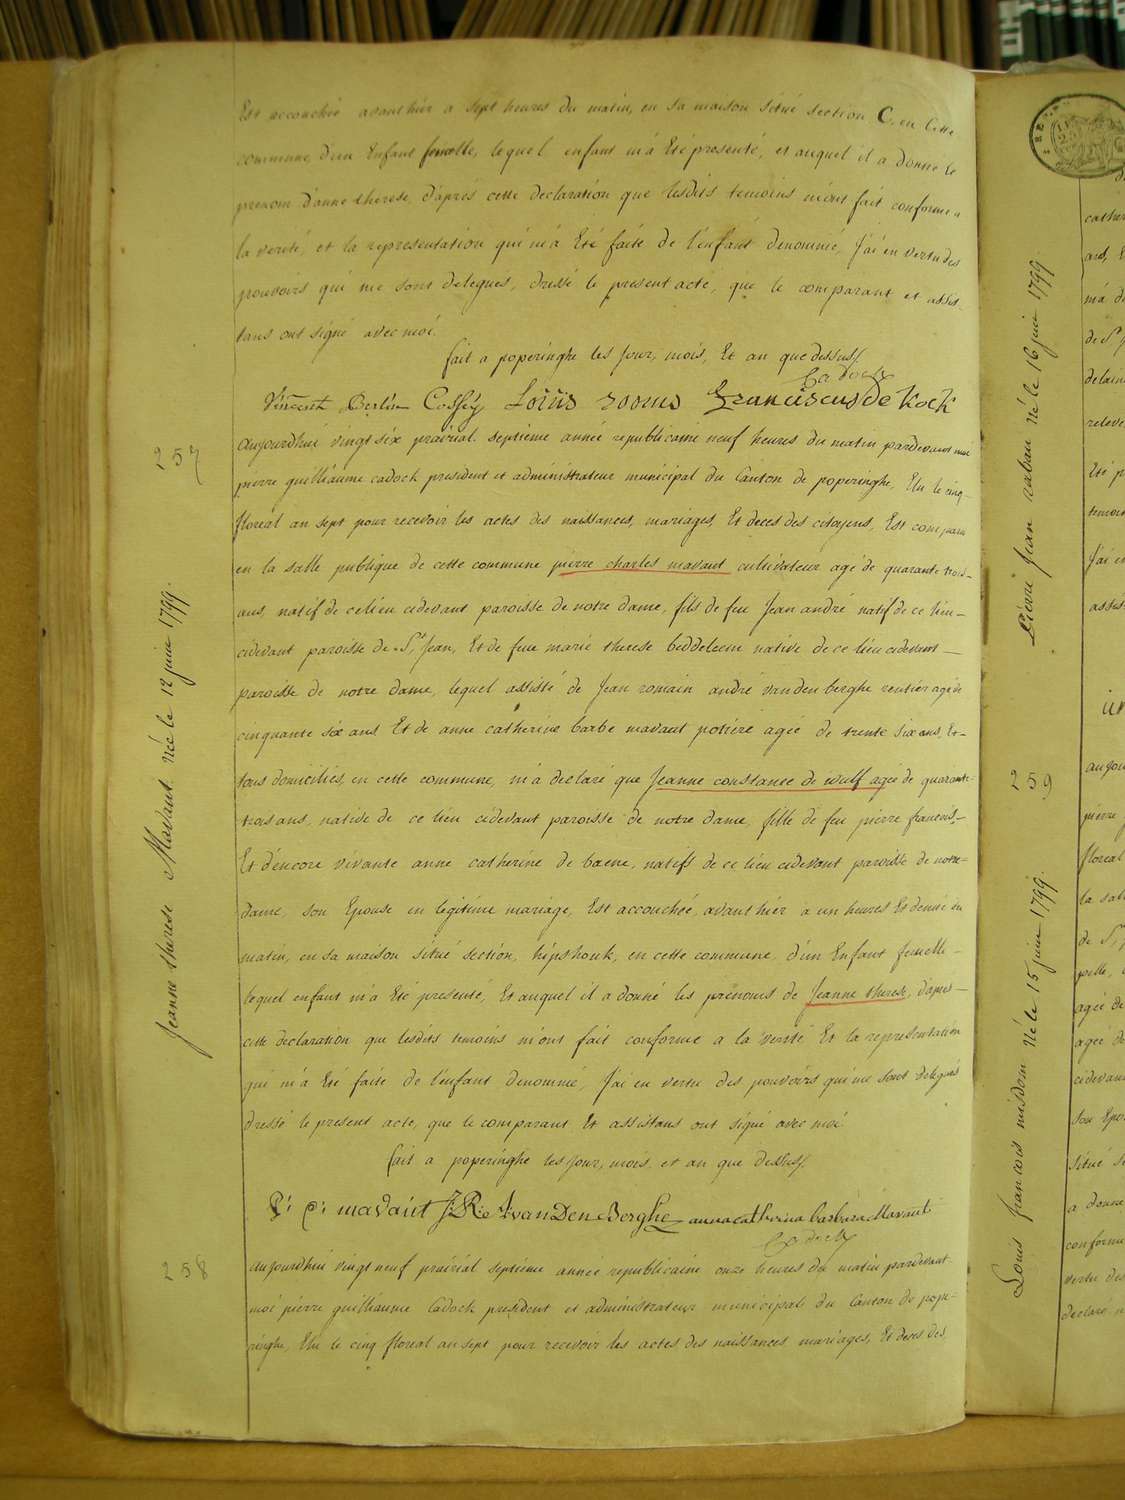 Est accouchée avanthier a sept heures du matin, en sa maison situé section C. en cette
commune, d'un Enfant femelle, lequel enfant m'a Eté presenté, et auquel il a donné le
prenom d'anne therese, d'aprés cette declaration que lesdits temoins m'ont fait conforme a
la verité, et la representation qui m'a Eté faite de l'enfant denommé, J'ai en vertu des
pouvoirs qui me sont delegués, dressé le present acte, que le comparant et assis-
tans ont signé avec moi.
fait a poperinghe les jour, mois, Et an que dessus/.
Cadock
Vincent Berlin Cossey Louis rooms Franciscus de Kock
257
aujourdhui vingt six prairial septieme année republicaine neuf heures du matin pardevant moi
pierre guilliaume cadock president et administrateur municipal du Canton de poperinghe, Elu le cinq
floreal an sept pour recevoir les actes des naissances, mariages, Et deces des citoyens, Est comparu
en la salle publique de cette commune pierre charles mavaut cultivateur agé de quarante trois
ans, natif de celieu cidevant paroisse de notre dame, fils de feu Jean andré natif de ce lieu
cidevant paroisse de St Jean, Et de feue marie therese beddeleem native de ce lieu cidevant
paroisse de notre dame, lequel assisté de Jean romain andré vanden berghe rentier agé de
cinquante six ans Et de anne catherine barbe mavaut agée de trente six ans, Et
tous domiciliés en cette commune, m'a declaré que Jeanne constance de wulf agée de quarante
trois ans, native de ce lieu cidevant paroisse de notre dame, fille de feu pierre francois,
Et d'encore vivante anne catherine de baene, natifs de ce lieu cidevant paroisse de notre
dame, son Epouse en legitime mariage, Est accouchée, avanthier a un heures Et demie du
matin, en sa maison situé section, hipshouk, en cette commune, d'un Enfant femelle
lequel enfant m'a Eté presenté, Et auquel il a donné les prénoms de Jeanne therese, d'aprés
cette declaration que lesdits temoins m'ont fait conforme a la verité Et la representation
qui m'a Eté faite de l'enfant denommé, J'ai en vertu des pouvoirs qui me sont delegués
dressé le present acte, que le comparant Et assistans ont signé avec moi
fait a poperinghe les jour, mois, et an que dessus/.
P: C: mavaut J: R: A vanDenBerghe anna catherina barbara Mavaut
Cadock
Jeanne therese Mavaut née le 12 juin 1799.
258
aujourdhui vingt neuf prairial septieme année republicaine onze heures du matin pardevant
moi pierre guilliaume Cadock president et administrateur municipal du Canton de pope-
ringhe, Elu le cinq floreal an sept pour recevoir les actes des naissances mariages, Et deces des
Lievri Jean raban né le 16 juin 1799.
259
Louis francois misdom né le 15 juin 1799.